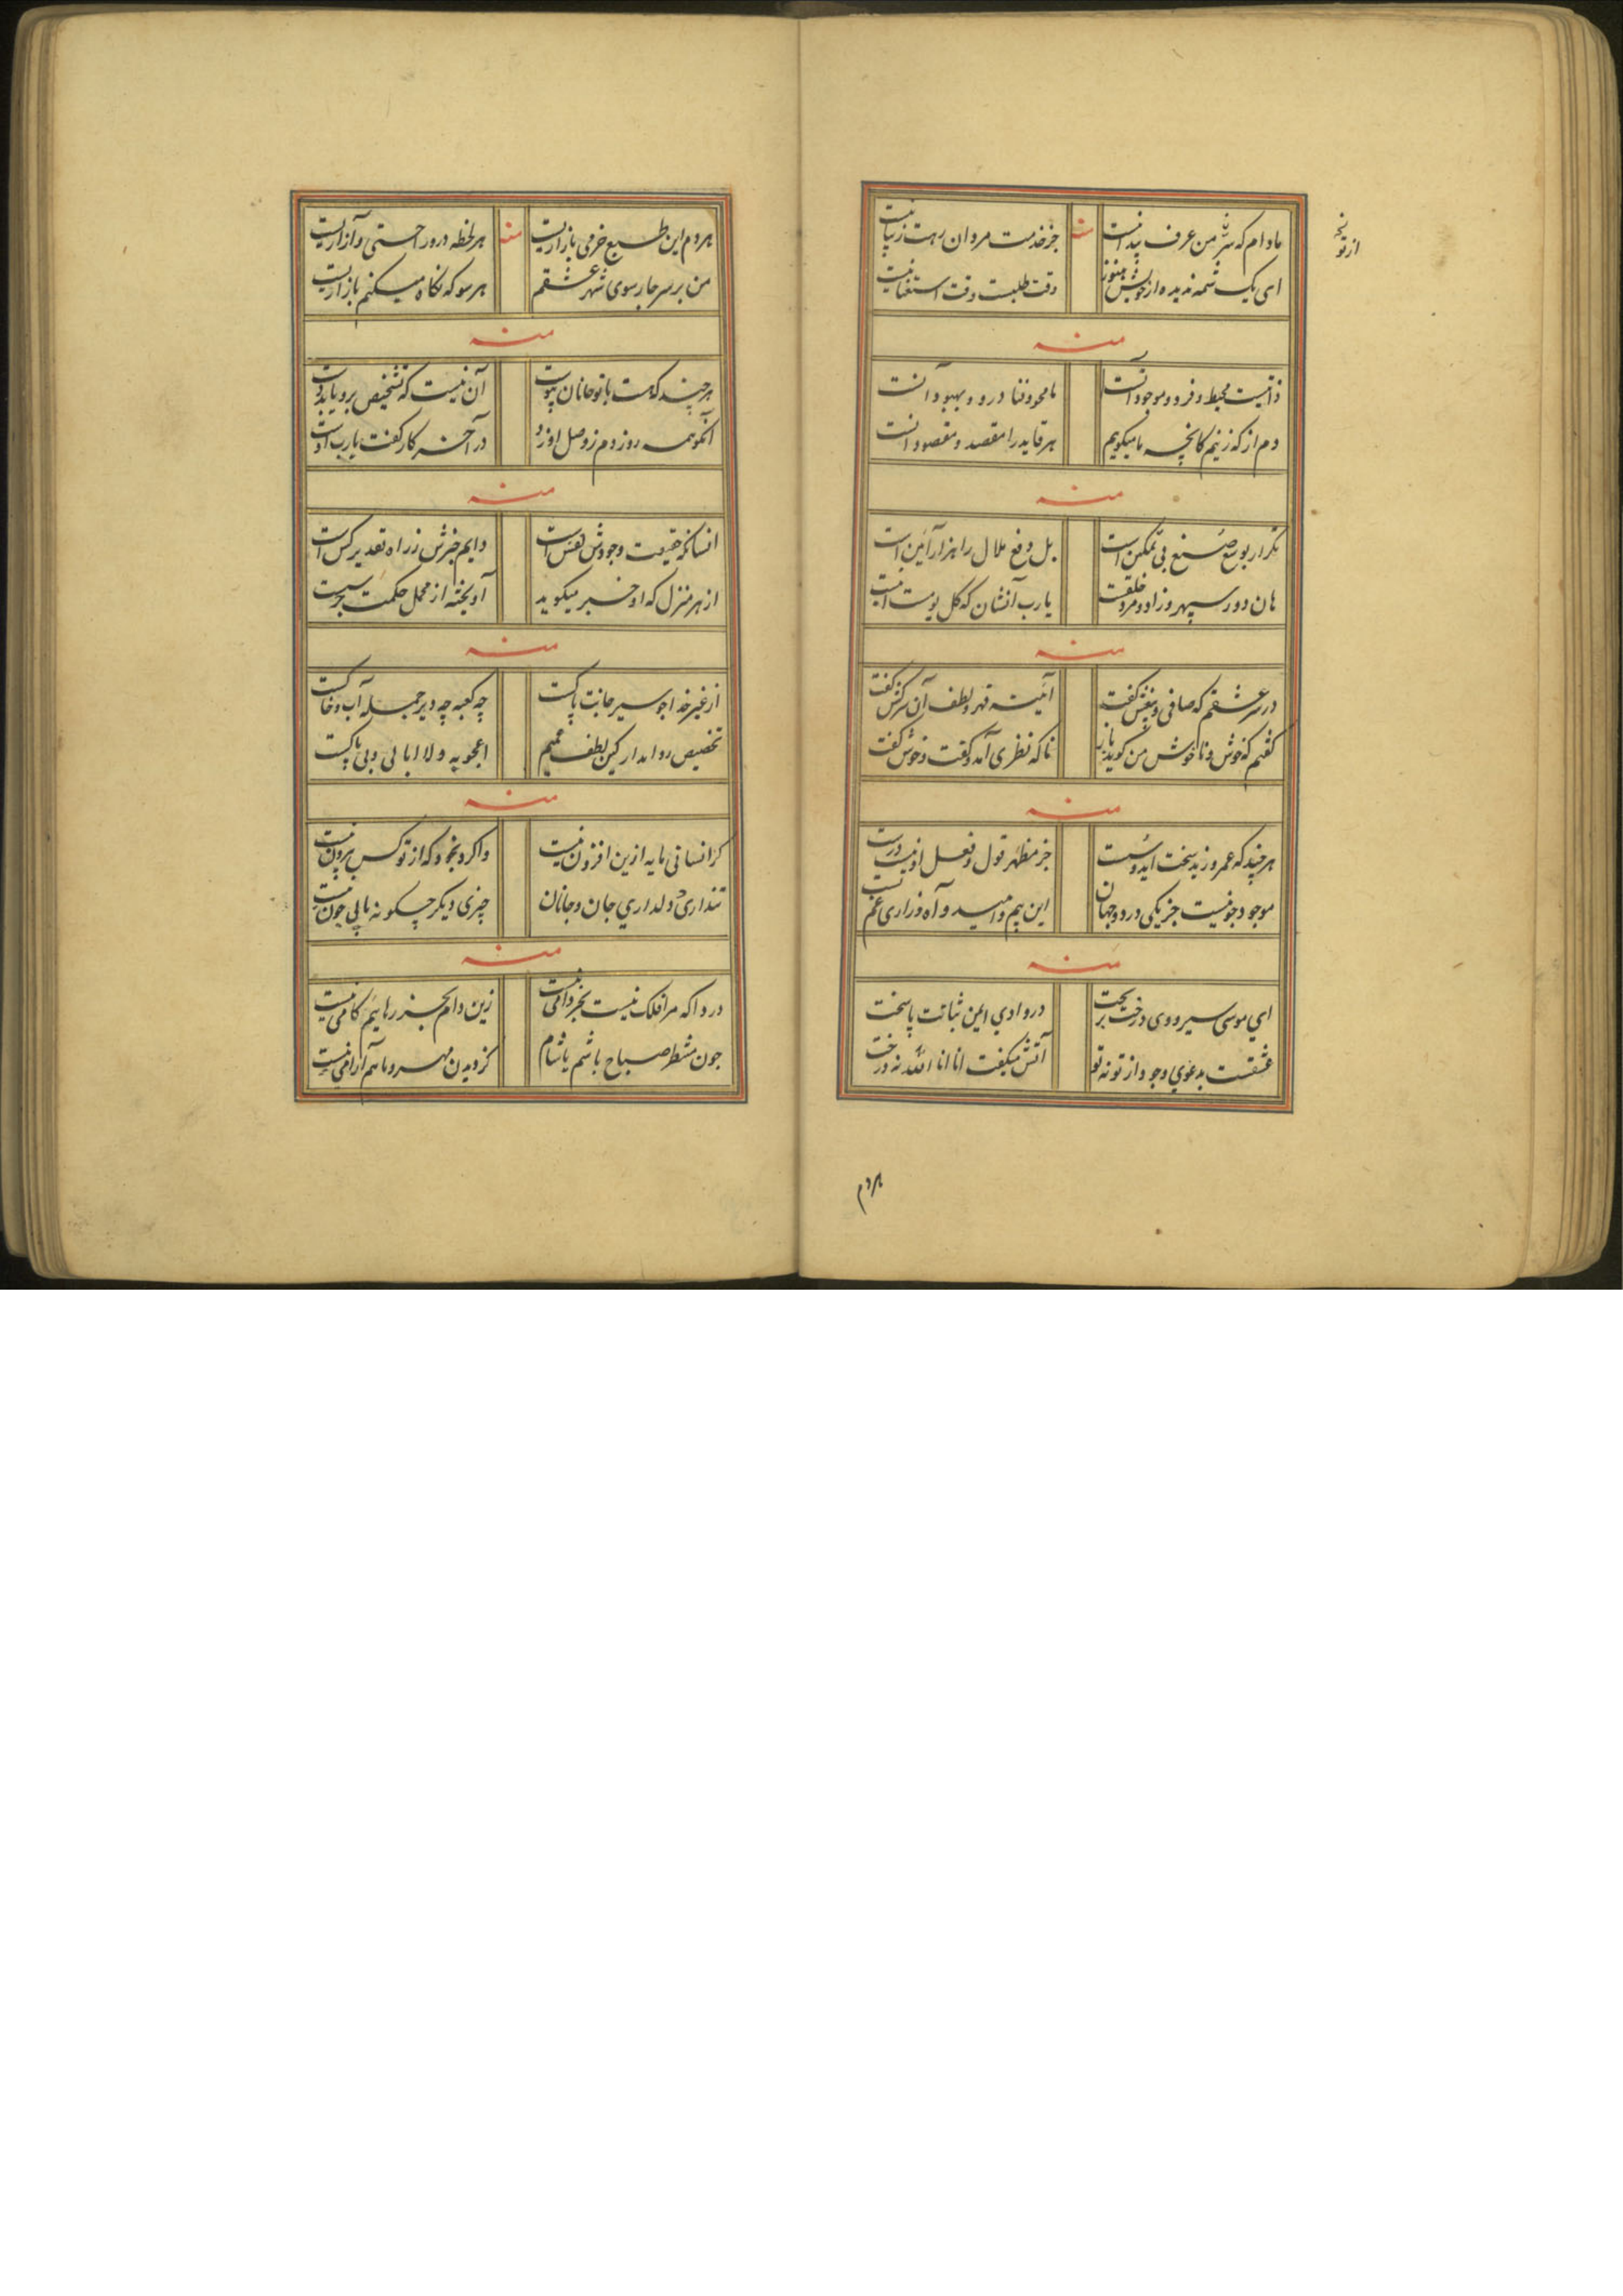 مادام که شر من عرف پیدا نیست
منه
جز خدمت مردان رهت زیبا نیست
ای یک شمه ندیده از خویش هنوز
وقت طلبست وقت استغنا نیست
منه
ذاتیست محیط و فرد و موجود آنست
ما محو و فنا درو و بهبود آنست
دم از که زنیم کانچه ما میگویم
هر قاید را مقصد و مقصود آنست
منه
تکرار بوسع صنع بی تمکین است
بل دفع ملال را هزار آئین است
هان دور سپهر و زاد و مرد خلقت
یارب آنشان که کل یومست اینست
منه
در سر عشقم که صافی و بیغش گفت
آئینه قهر و لطف آن سرکش گفت
گفتم که خوش و ناخوش من گوید باز
ناگه نظری آمد و گفت و خوش گفت
منه
هر چند که عمرو زید سخت آید و سست
جز مظهر قول و فعل او نیست درست
موجود چو نیست جز یکی در دو جهان
این بیم و امید و آه و زاری غم تست
منه
ای موسی سیر وادی درخت بر بخت
در وادی ایمن ثباتت پا سخت
عشقست بدعوی وجود از تو نه تو
آتش میگفت انا انا الله نه درخت
هردم
از تو
هردم این طبع خرمی بازاریست
منه
هر لحظه درو راحتی و آزاریست
من بر سر چارسوی شهر عشقم
هر سو که نگاه میکنم بازاریست
منه
هر چند که هست با تو جانان پیوست
آن نیست که تشخیص برو یابد دست
آنکو همه روز دم ز وصل او زد
در آخر کار گفت یارب او هست
منه
انسان که حقیقت وجودش نفس است
دایم خبرش ز راه تقدیر کس است
از هر منزل که او خبر میگوید
آویخته از محمل حکمت جرسیست
منه
از غیر خدا جو سیر جانت پاکست
چه کعبه چه دیر جمله آب و خاکست
تخصیص روا مدار کین لطف عمیم
اعجوبه و لا ابالی و بی باکست
منه
گر انسانی مایه ازین افزون نیست
واگرد بخود که از تو کس بیرون نیست
تنداری و دلداری جان و جانان
چیزی دیگر چگونه یابی چون نیست
منه
دردا که مرا فلک نیست بجز دامی نیست
زین دام بجز رهائیم کامی نیست
چون منتظر صباح باشم یا شام
کز دیدن مهر و ماهم آرامی نیست